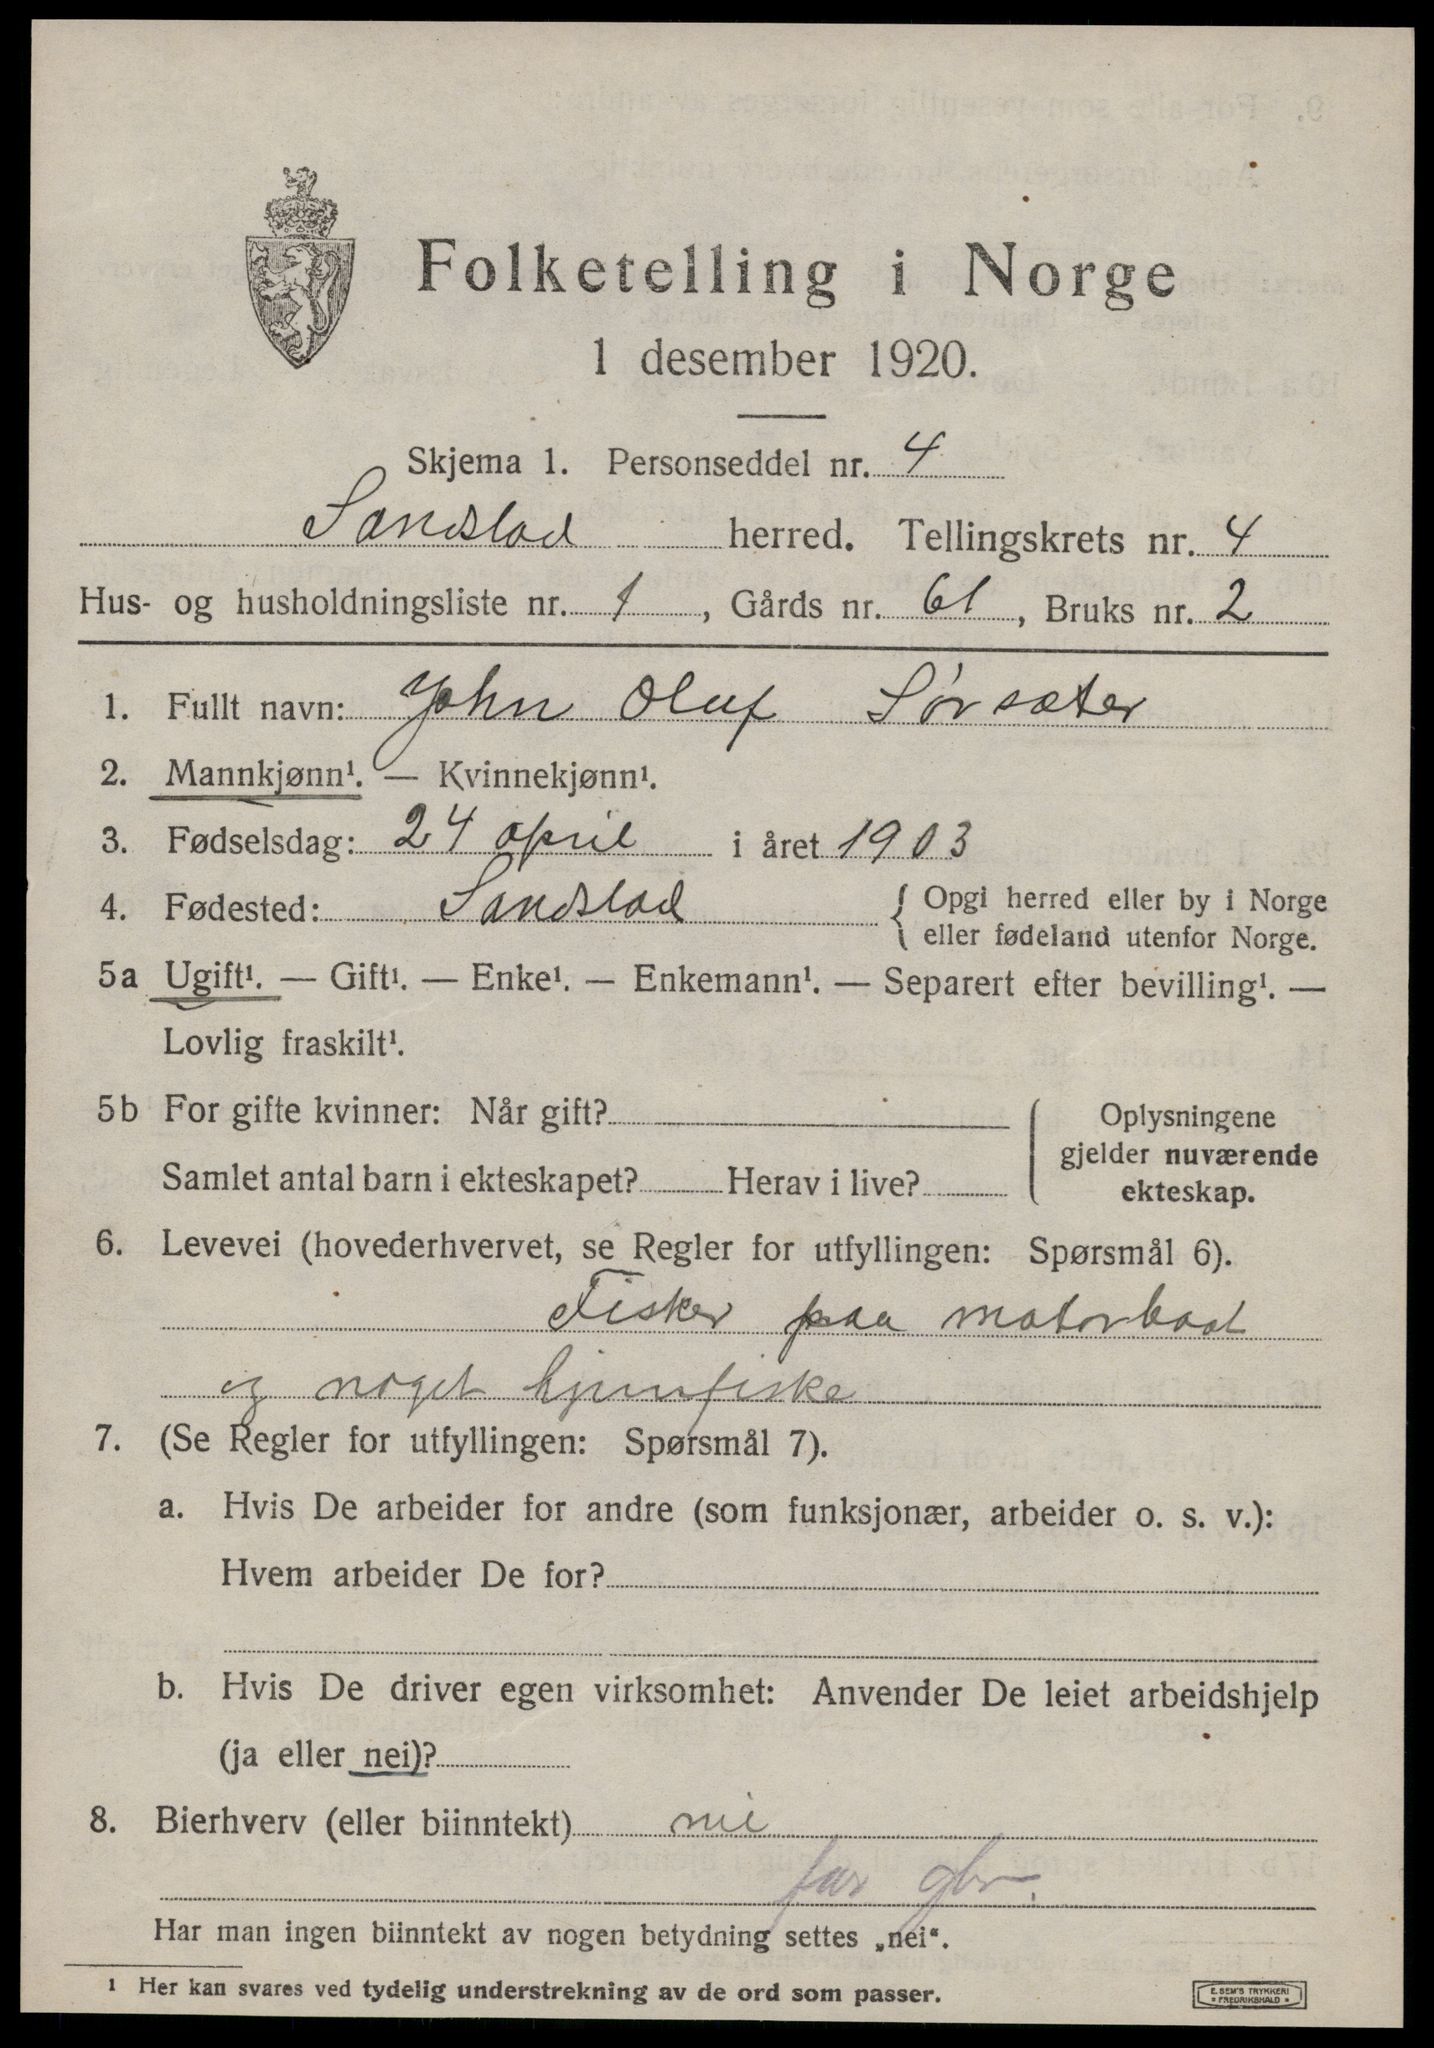 Folketelling i Norge
1 desember 1920.
Skjema 1. Personseddel nr. 4
Sandstad herred. Tellingskrets nr. 4
Hus- og husholdningsliste nr. 1, Gårds nr. 61, Bruks nr. 2
1. Fullt navn: John Oluf Sørsæter
2. Mannkjønn¹. — Kvinnekjønn¹.
3. Fødselsdag: 24 april i året 1903
4. Fødested: Sandstad { Opgi herred eller by i Norge
eller fødeland utenfor Norge.
5a Ugift¹. — Gift¹. — Enke¹. — Enkemann¹. — Separert efter bevilling¹. —
Lovlig fraskilt¹.
5b For gifte kvinner: Når gift?
Samlet antal barn i ekteskapet? Herav i live?
Oplysningene
gjelder nuværende
ekteskap.
6. Levevei (hovederhvervet, se Regler for utfyllingen: Spørsmål 6).
Fisker paa motorbaat
og noget hjemfiske
7. (Se Regler for utfyllingen: Spørsmål 7).
a. Hvis De arbeider for andre (som funksjonær, arbeider o. s. v.):
Hvem arbeider De for?
b. Hvis De driver egen virksomhet: Anvender De leiet arbeidshjelp
(ja eller nei)?
8. Bierhverv (eller biinntekt) nei
far gbr.
Har man ingen biinntekt av nogen betydning settes „nei“.
¹ Her kan svares ved tydelig understrekning av de ord som passer.
E. SEM'S TRYKKERI
* FREDRIKSHALD *